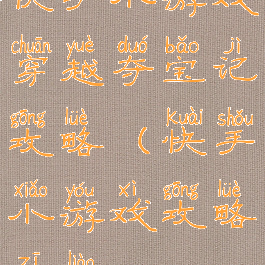 chuān yuè duó bǎo jì
穿越夺宝记
gōng lüè kuài shǒu
攻略（快手
xiǎo yóu xì gōng lüè
小游戏攻略